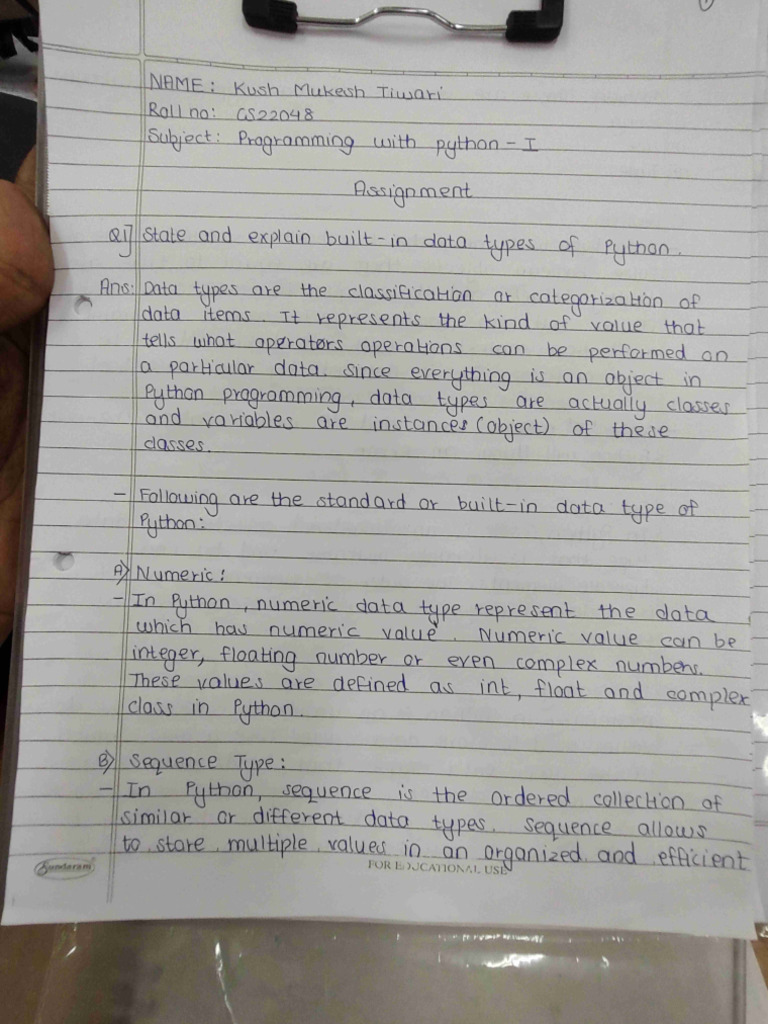 NAME: Kush Mukesh Tiwari
Roll no: CS22048
Subject: Programming with python - I
Assignment
Q1] State and explain built-in data types of Python.
Ans: Data types are the classification or categorization of
data items. It represents the kind of value that
tells what operators operations can be performed on
a particular data. Since everything is an object in
Python programming, data types are actually classes
and variables are instances (object) of these
classes.
- Following are the standard or built-in data type of
Python:
A) Numeric:
- In Python, numeric data type represent the data
which has numeric value. Numeric value can be
integer, floating number or even complex numbers.
These values are defined as int, float and complex
class in Python.
B) Sequence Type:
- In Python, sequence is the ordered collection of
similar or different data types. Sequence allows
to store multiple values in an organized and efficient
Sundaram
FOR EDUCATIONAL USE